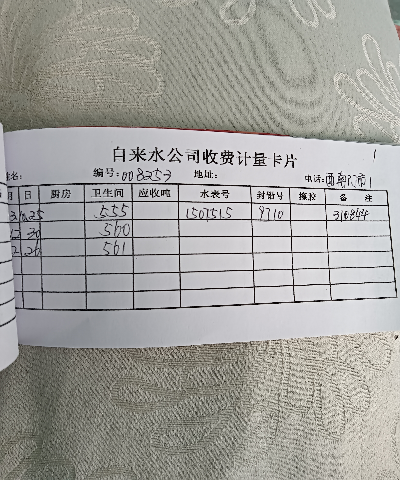 自来水公司收费计量卡片
姓名: 编号:008253 地址: 电话:
月 日 厨房 卫生间 应收吨 水表号 封铅号 接胶 备 注
25 555 1507515 9710 310844
30 560
26 561